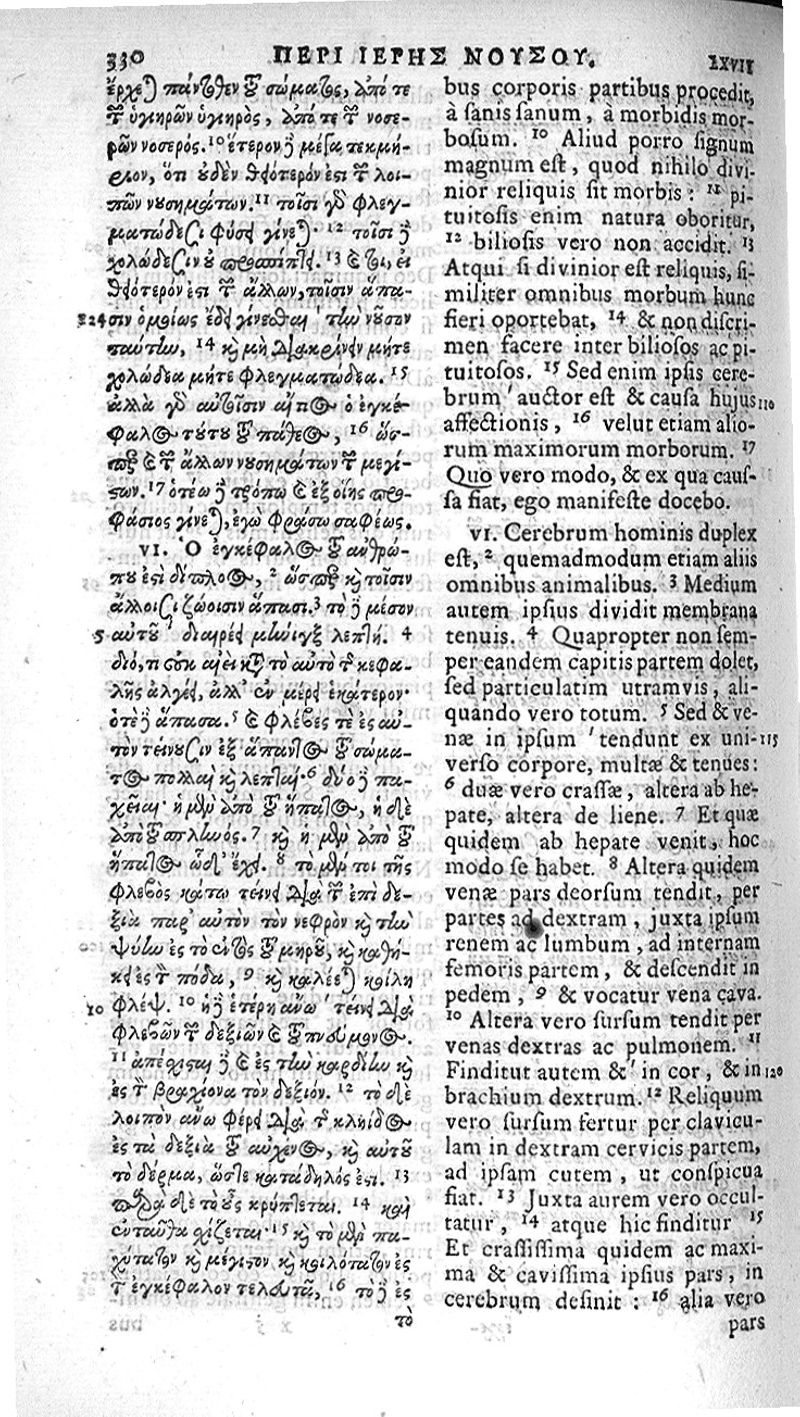 330 ΠΕΡΙ ΙΕΡΗΣ ΝΟΥΣΟΥ. LXVII
ἔρχεται πάντοθεν τοῦ σώματος, ἀπό τε
τῶν ὑγιηρῶν ὑγιηρὸς, ἀπό τε τῶν νοσε-
ρῶν νοσερός. 10 ἕτερον δὲ μέγα τεκμή-
ριον, ὅτι οὐδὲν θειότερόν ἐστι τῶν λοι-
πῶν νουσημάτων. 11 τοῖσι γὰρ φλεγ-
ματώδεσι φύσει γίνεται· 12 τοῖσι δὲ
χολώδεσιν οὐ προσπίπτει. 13 καίτοι, εἰ
θειότερόν ἐστι τῶν ἄλλων, τοῖσιν ἅπα-
324 σιν ὁμοίως ἔδει γίνεσθαι ' τὴν νοῦσον
ταύτην, 14 καὶ μὴ διακρίνειν μήτε
χολώδεα μήτε φλεγματώδεα. 15
ἀλλὰ γὰρ αὐτοῖσιν αἴτιος ὁ ἐγκέ-
φαλος τούτου τοῦ πάθεος, 16 ὥσ-
περ καὶ τῶν ἄλλων νουσημάτων τῶν μεγί-
στων. 17 ὁτέῳ δὲ τρόπῳ καὶ ἐξ οἵης προ-
φάσιος γίνεται, ἐγὼ φράσω σαφέως.
VI. Ὁ ἐγκέφαλος τοῦ ἀνθρώ-
που ἐστὶ διπλόος, 2 ὥσπερ καὶ τοῖσιν
ἄλλοισι ζώοισιν ἅπασι. 3 τὸ δὲ μέσον
5 αὐτοῦ ' διαιρέει μήνιγξ λεπτή. 4
διό, τι οὐκ αἰεὶ κατὰ τὸ αὐτὸ τῆς κεφα-
λῆς ἀλγέει, ἀλλ' ἐν μέρει ἑκάτερον·
ὁτὲ δὲ ἅπασα. 5 καὶ φλέβες τε ἐς αὐ-
τὸν τείνουσιν ἐξ ἅπαντος τοῦ σώμα-
τος πολλαὶ καὶ λεπταί· 6 δύο δὲ πα-
χεῖαι· ἡ μὲν ἀπὸ τοῦ ἥπατος, ἡ δὲ
ἀπὸ τοῦ σπληνός. 7 καὶ ἡ μὲν ἀπὸ τοῦ
ἥπατος ὧδε ἔχει. 8 τὸ μέν τοι τῆς
φλεβὸς κάτω τείνει διὰ τῶν ἐπὶ δε-
ξιὰ παρ' αὐτὸν τὸν νεφρὸν καὶ τὴν
ψύην ἐς τὸ ἐντὸς τοῦ μηροῦ, καὶ καθή-
κει ἐς τὸν πόδα, 9 καὶ καλέεται κοίλη
10 φλέψ. 10 ἡ δὲ ἑτέρη ἄνω ' τείνει διὰ
φλεβῶν τῶν δεξιῶν καὶ τοῦ πνεύμονος.
11 ἀπέσχισται δὲ καὶ ἐς τὴν καρδίην καὶ
ἐς τὸν βραχίονα τὸν δεξιόν. 12 τὸ δὲ
λοιπὸν ἄνω φέρει διὰ τῆς κληίδος
ἐς τὰ δεξιὰ τοῦ αὐχένος, καὶ αὐτοῦ
τὸ δέρμα, ὥστε κατάδηλός ἐστι. 13
παρὰ δὲ τὸ οὖς κρύπτεται. 14 καὶ
ἐνταῦθα σχίζεται· 15 καὶ τὸ μὲν πα-
χύτατον καὶ μέγιστον καὶ κοιλότατον ἐς
τὸν ἐγκέφαλον τελευτᾷ, 16 τὸ δὲ ἐς
τὸ
bus corporis partibus procedit,
à sanis sanum, à morbidis mor-
bosum. 10 Aliud porro signum
magnum est, quod nihilo divi-
nior reliquis sit morbis: 11 pi-
tuitosis enim natura oboritur,
12 biliosis vero non accidit. 13
Atqui si divinior est reliquis, si-
militer omnibus morbum hunc
fieri oportebat, 14 & non discri-
men facere inter biliosos ac pi-
tuitosos. 15 Sed enim ipsis cere-
brum ' auctor est & causa hujus 110
affectionis, 16 velut etiam alio-
rum maximorum morborum. 17
Quo vero modo, & ex qua caus-
sa fiat, ego manifeste docebo.
VI. Cerebrum hominis duplex
est, 2 quemadmodum etiam aliis
omnibus animalibus. 3 Medium
autem ipsius dividit membrana
tenuis. 4 Quapropter non sem-
per eandem capitis partem dolet,
sed particulatim utramvis, ali-
quando vero totum. 5 Sed & ve-
næ in ipsum ' tendunt ex uni- 115
verso corpore, multæ & tenues:
6 duæ vero crassæ, altera ab he-
pate, altera de liene. 7 Et quæ
quidem ab hepate venit, hoc
modo se habet. 8 Altera quidem
venæ pars deorsum tendit, per
partes ad dextram, juxta ipsum
renem ac lumbum, ad internam
femoris partem, & descendit in
pedem, 9 & vocatur vena cava.
10 Altera vero sursum tendit per
venas dextras ac pulmonem. 11
Finditur autem & ' in cor, & in 120
brachium dextrum. 12 Reliquum
vero sursum fertur per clavicu-
lam in dextram cervicis partem,
ad ipsam cutem, ut conspicua
fiat. 13 Juxta aurem vero occul-
tatur, 14 atque hic finditur 15
Et crassissima quidem ac maxi-
ma & cavissima ipsius pars, in
cerebrum desinit: 16 alia vero
pars